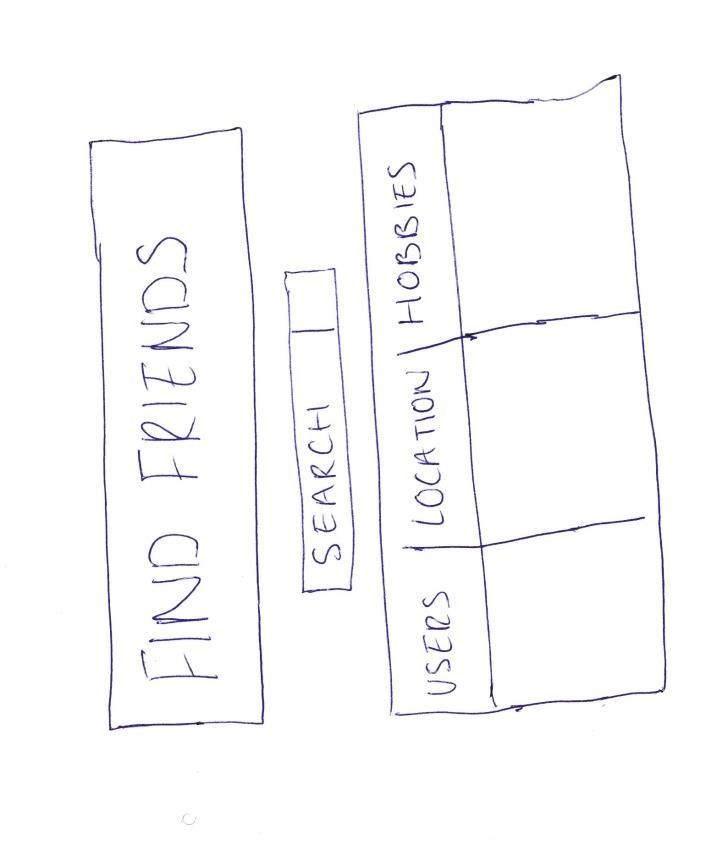 FIND FRIENDS
SEARCH
USERS LOCATION HOBBIES